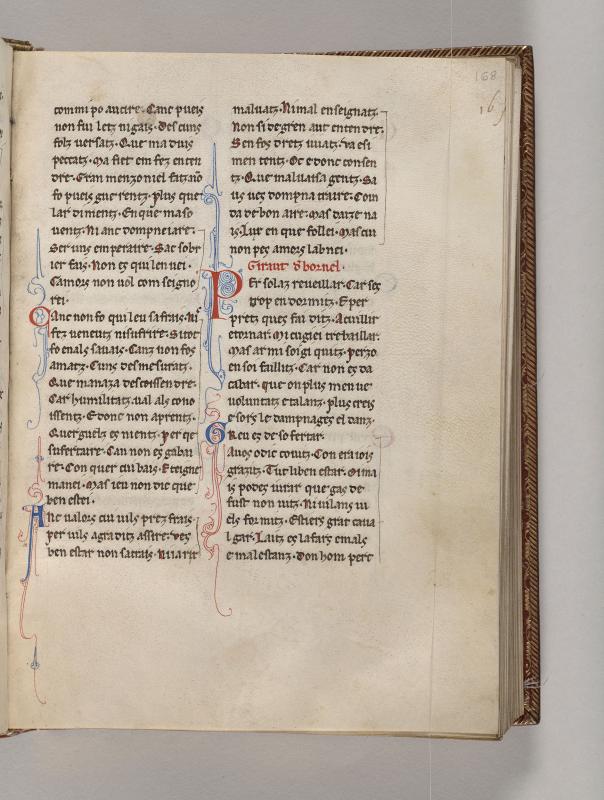 168
commi po aucire. Canc pueis
non fui letz nigais. Des cuns
folz uersatz. Que ma duis
peccatz. Ma fiet em fez enten
dre. Gran menzoniel
fo pueis guerentz. plus que
lar dimentz. En que maso
uentz. Ni anc dompneiare.
Ser uns emperaire. Sac sobr
ier fais. Non ez qui len uei.
Camors non uol com seigno
rei.
Canc non fo qui leu safrais. Ni
fez uencutz ni sufrire. Si tot
fo enals sauais. Canz non fos
amatz. Cuns desmesuratz.
Que manaza descoissendre.
Car humilitatz. ual als cono
issentz. E donc non aprentz.
Querguelz ez nientz. per qe
sufertaire. Can non ez gabai
re. Con quer cui bais. E teigne
manei. Mas ieu non dic que
ben estei.
Anc ualors cui uils prez frais.
per uils agraditz assire. Ves
ben estar non satrais. Ni
maluatz. Ni mal enseignatz.
Non si degren aut entendre.
Sen fos dretz iuiatz. Ya esi
mententz. Oc e donc consen
tz. Que maluaisa gentz. Sa
us uez dompna traire. Coin
da de bon aire. Mas daize na
is. Lur en que follei. Mas cui
non pez amors labnei.
Giraut d bornel.
Per solaz reueillar. Car sez
trop endormitz. E per
pretz ques fai ditz. Acuillir
etornar. Mi cugiei trebaillar.
Mas ar mi soi gi quitz. perzo
en soi faillitz. Car non ez da
cabar. que on plus men ue
uoluntatz e talanz. plus creis
e sors le dampnages el danz.
Greu ez de sofertar.
Auos o dic couitz. Con era iois
grazitz. Tut li ben estar. Oima
is podez iurar que gas de
fust non uitz. Ni uilans ui
els formitz. Estiers grat caua
lgar. Laitz ez lafars emals
e mal estanz. Don hom pert